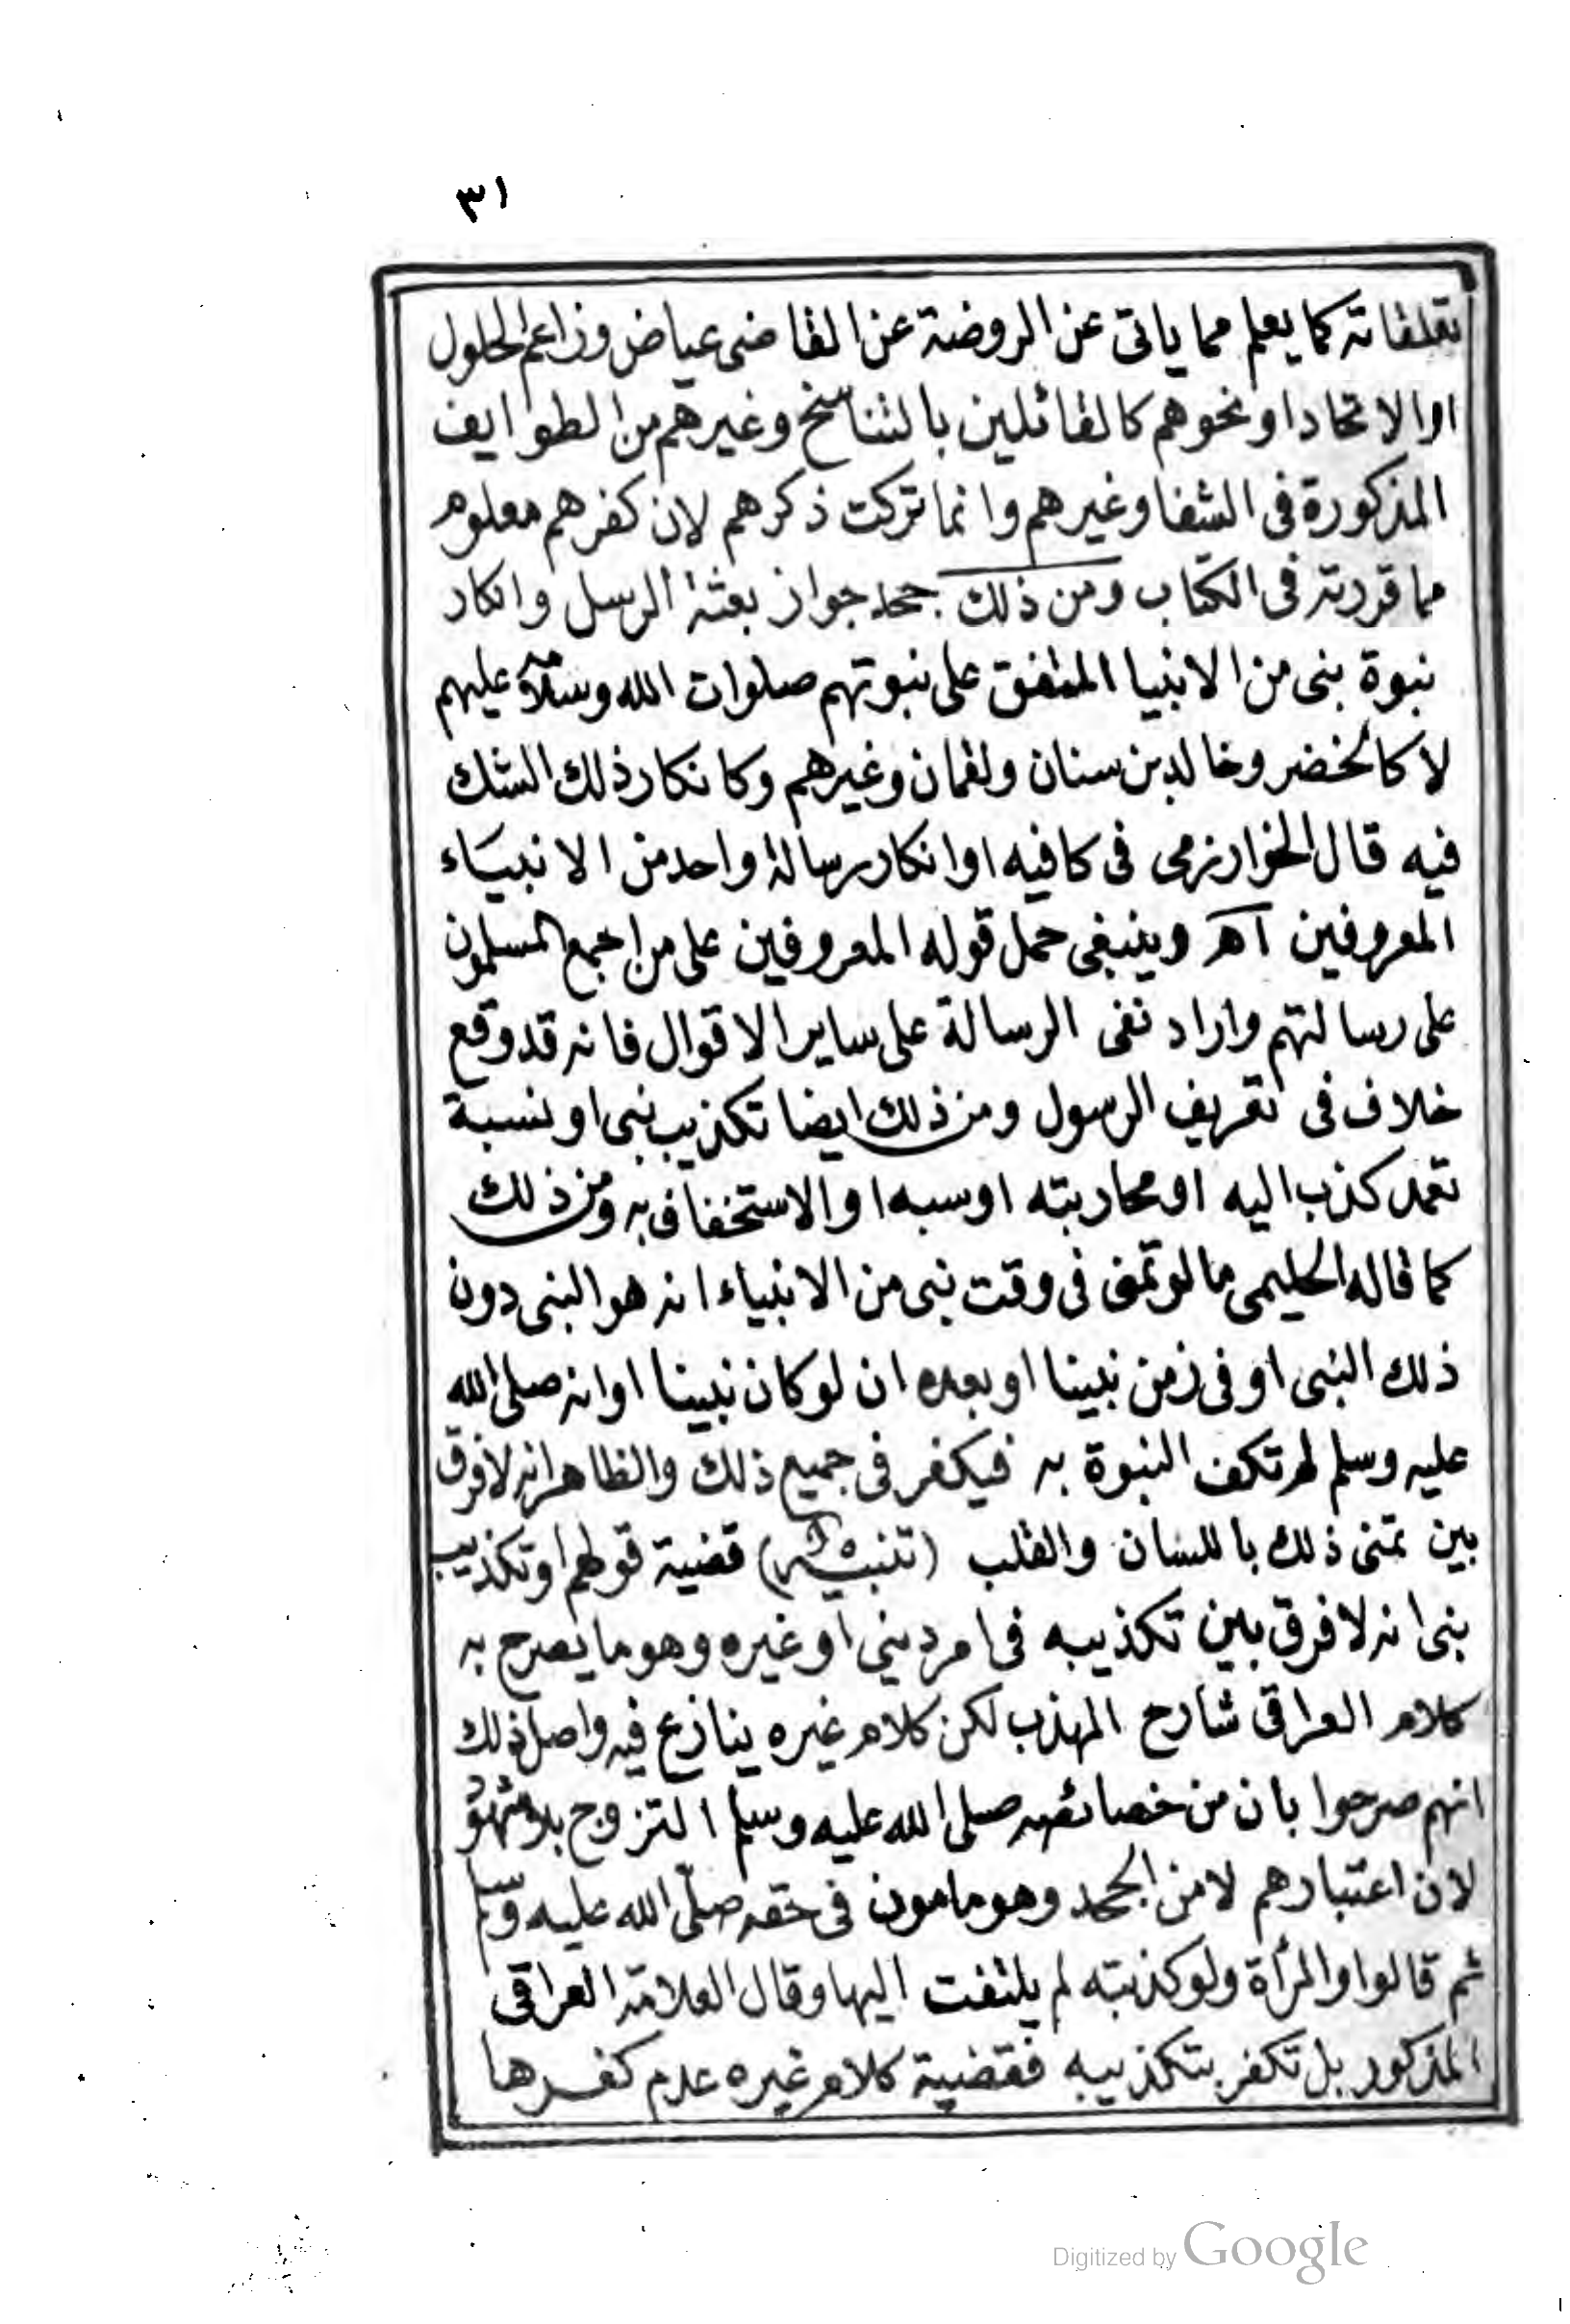 ٣١
تعلقاته كما يعلم مما ياتى عن الروضة عن القاضى عياض وزاعم الحلول
او الاتحاد او نحوهم كالقائلين بالتناسخ وغيرهم من الطوايف
المذكورة فى الشفا وغيرهم وانما تركت ذكرهم لان كفرهم معلوم
مما قررته فى الكتاب ومن ذلك جحد جواز بعثة الرسل وانكار
نبوة نبى من الانبيا المتفق على نبوتهم صلوات الله وسلامه عليهم
لا كالخضر وخالد بن سنان ولقمان وغيرهم وكانكار ذلك الشك
فيه قال الخوارزمى فى كافيه او انكار رسالة واحد من الانبياء
المعروفين اهـ وينبغى حمل قوله المعروفين على من اجمع المسلمون
على رسالتهم واراد نفى الرسالة على ساير الاقوال فانه قد وقع
خلاف فى تعريف الرسول ومن ذلك ايضا تكذيب نبى او نسبة
تعمد كذب اليه او محاربته او سبه او الاستخفاف به ومن ذلك
كما قاله الحليمى ما لو تمنى فى وقت نبى من الانبياء انه هو النبى دون
ذلك النبى او فى زمن نبينا او بعده ان لو كان نبينا او انه صلى الله
عليه وسلم لم تكن النبوة به فيكفر فى جميع ذلك والظاهر انه لا فرق
بين تمنى ذلك باللسان والقلب (تنبيه) قضية قولهم او تكذيب
نبى انه لا فرق بين تكذيبه فى امر دينى او غيره وهو ما يصرح به
كلام العراقى شارح المهذب لكن كلام غيره ينازع فيه واصل ذلك
انهم صرحوا بان من خصائصه صلى الله عليه وسلم التزوج بلا شهود
لان اعتبارهم لامن الجحد وهو مامون فى حقه صلّى الله عليه وسلم
ثم قالوا والمرأة ولو كذبته لم يلتفت اليها وقال العلامة العراقى
المذكور بل تكفر بتكذيبه فقضية كلام غيره عدم كفرها
Digitized by Google